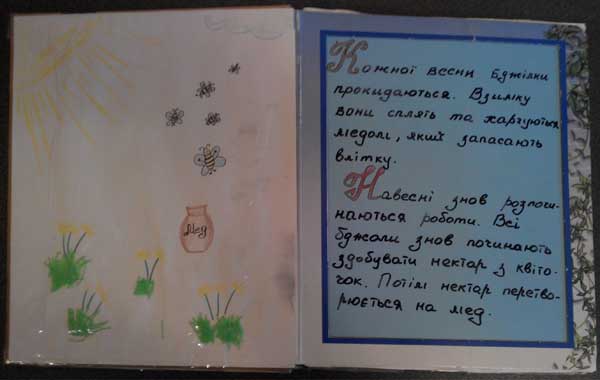 Мед
Кожної весни бджілки
прокидаються. Взимку
вони сплять та харчуються
медом, який запасають
влітку.
Навесні знов розпочи-
наються роботи. Всі
бджоли знов починають
здобувати нектар з квіто-
чок. Потім нектар перетво-
рюється на мед.